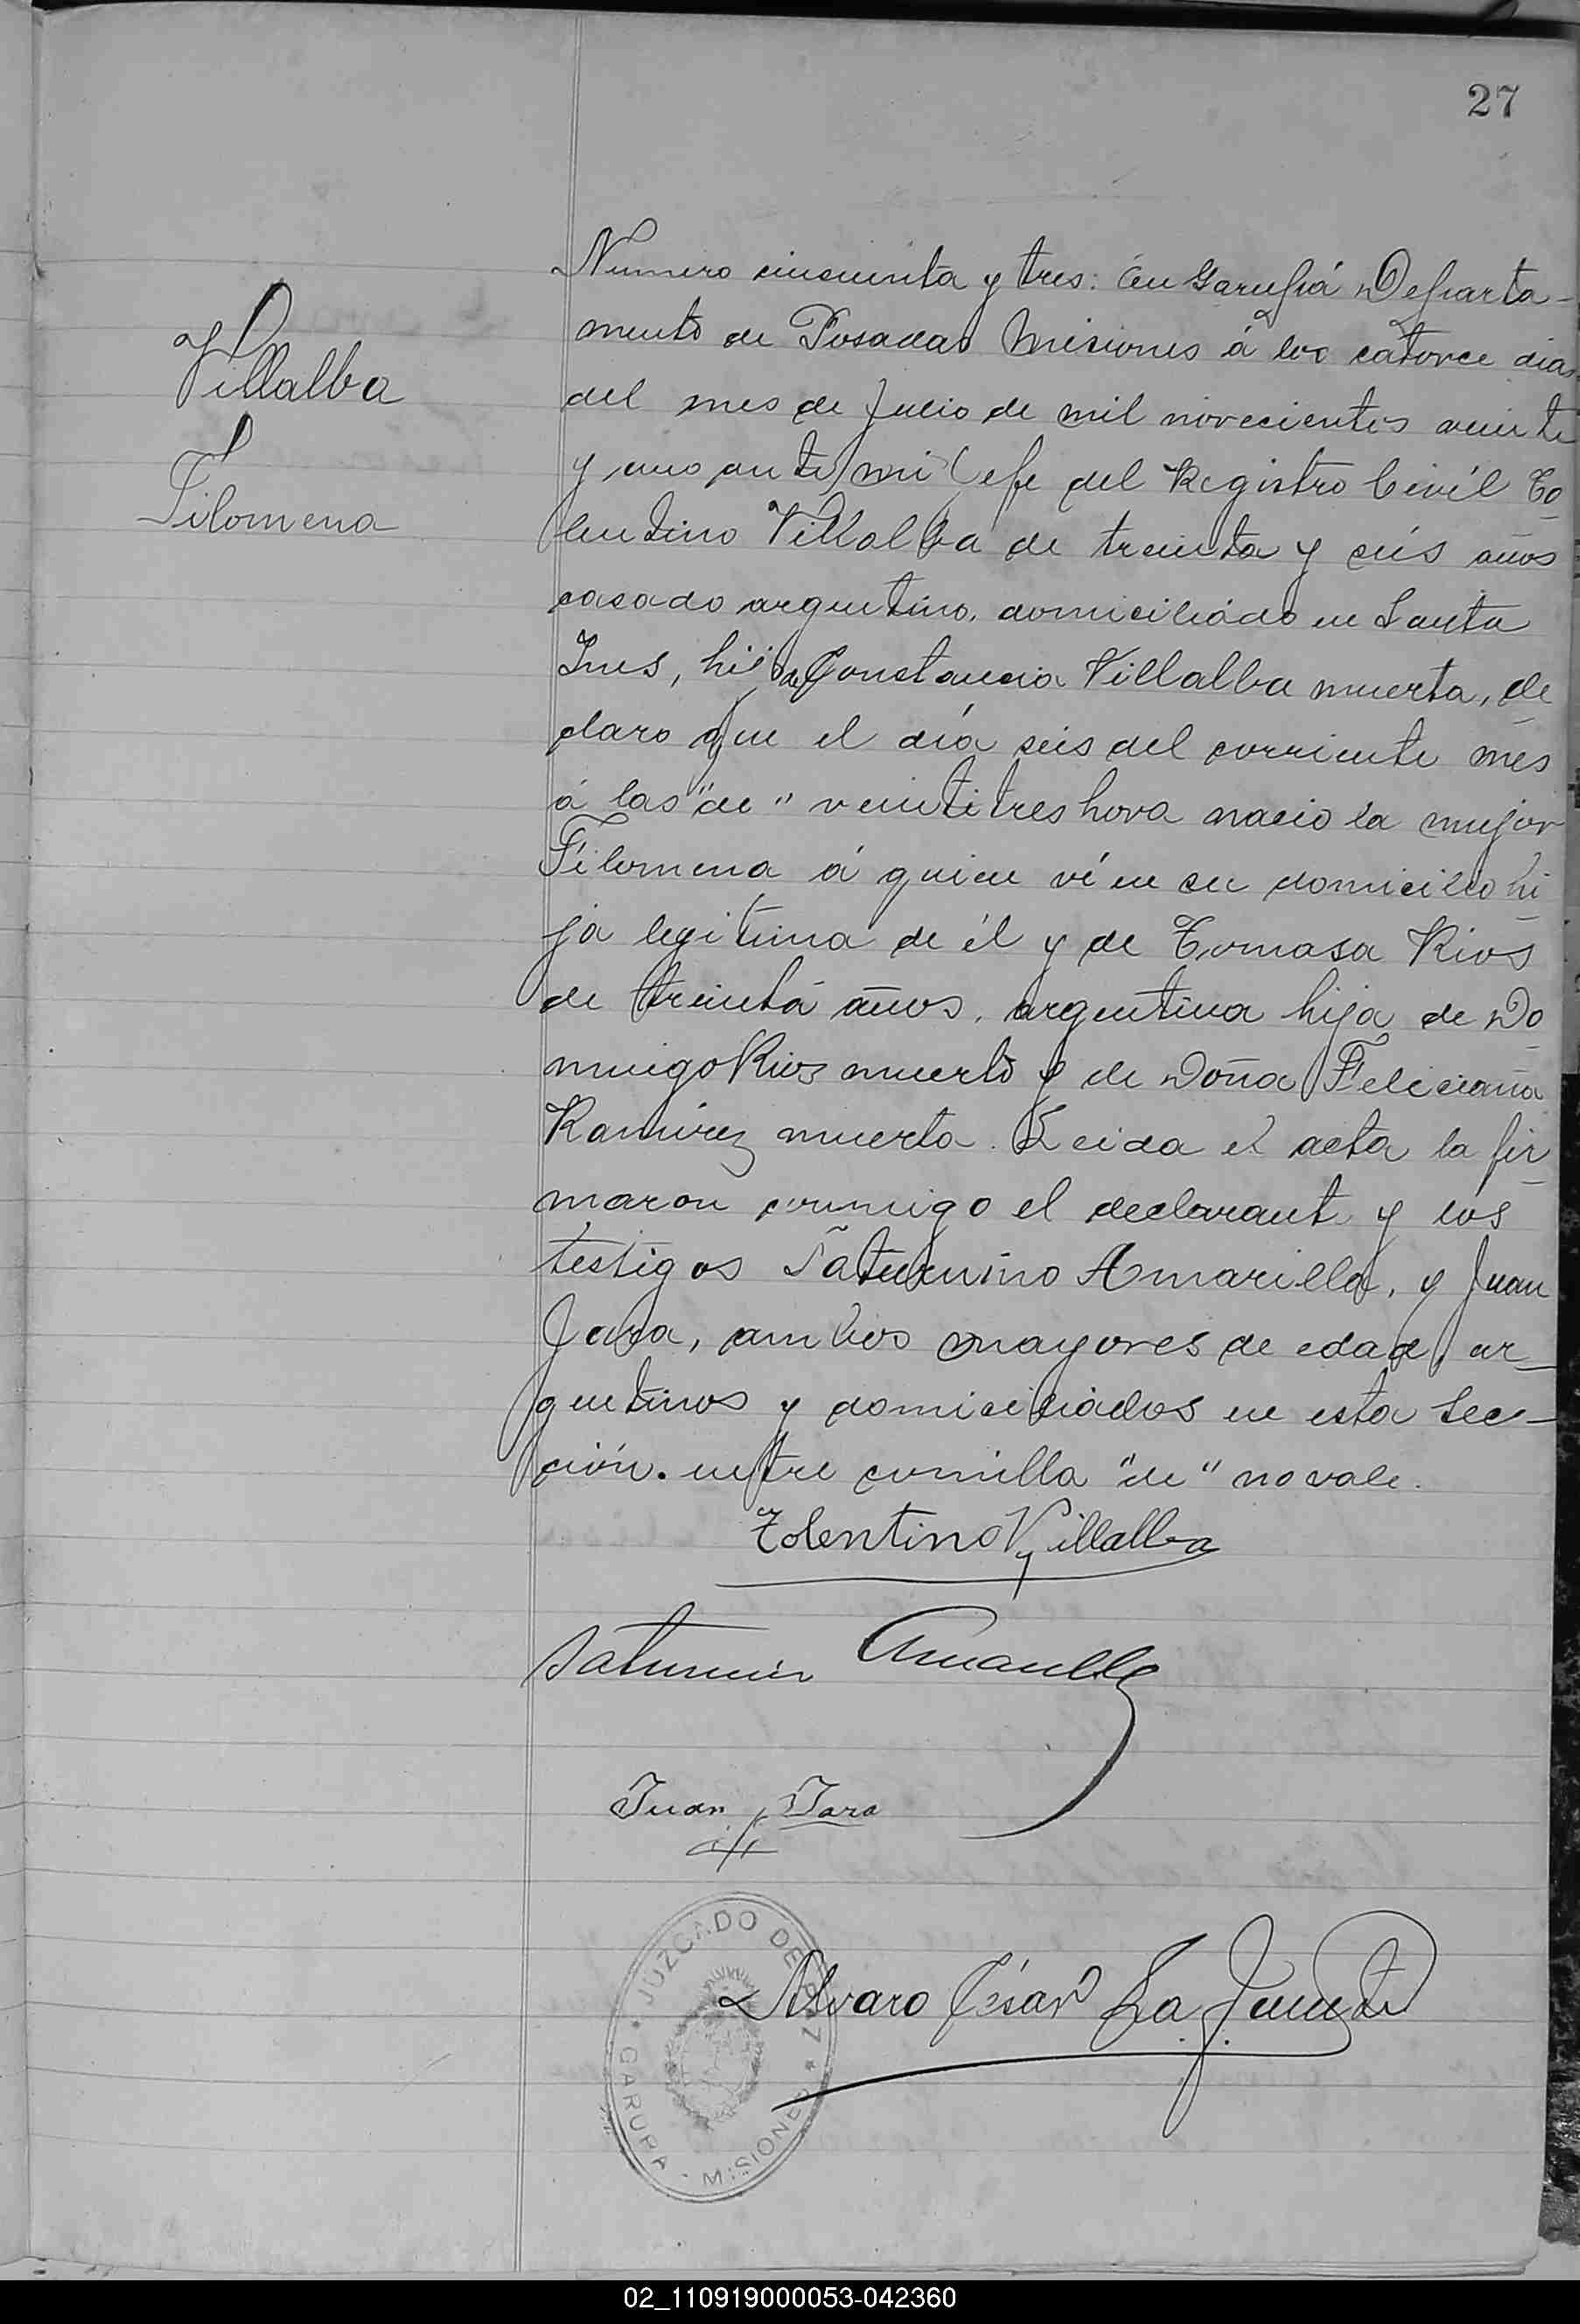 27
Villalba
Filomena
Numero cincuenta y tres: En Garupá Departa-
mento de Posadas Misiones á los catorce dias
del mes de Julio de mil novecientos veinte
y uno ante mi Jefe del Registro Civil To
lentino Villalba de treinta y seis años
casado argentino, domiciliádo en Santa
Ines, hijo de Constancia Villalba muerta, de
claro que el día seis del corriente mes
á las "de" veintitres hora nacio la mujer
Filomena á quien ví en su domicilio hi
ja legitima de él y de Tomasa Rios
de treinta años, argentina hija de Do
mingo Rios muerto y de Doña Feliciana
Ramirez muerta. Leida el acta la fir
maron conmigo el declarant y los
testigos Saturnino Amarilla, y Juan
Jara, ambos mayores de edad, ar-
gentinos y domiciliados en esta Sec-
ción. entre comilla "de" no vale.
Tolentino Villalba
Saturnin Amarilla
Juan Jara
Alvaro César La
JUZGADO DE PAZ * GARUPA - MISIONES *
02_110919000053-042360